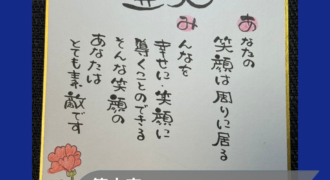 あなたの
笑顔は周りに居る
みんなを
幸せに・笑顔に
導くことのできる
そんな笑顔の
あなたは
とても素敵です